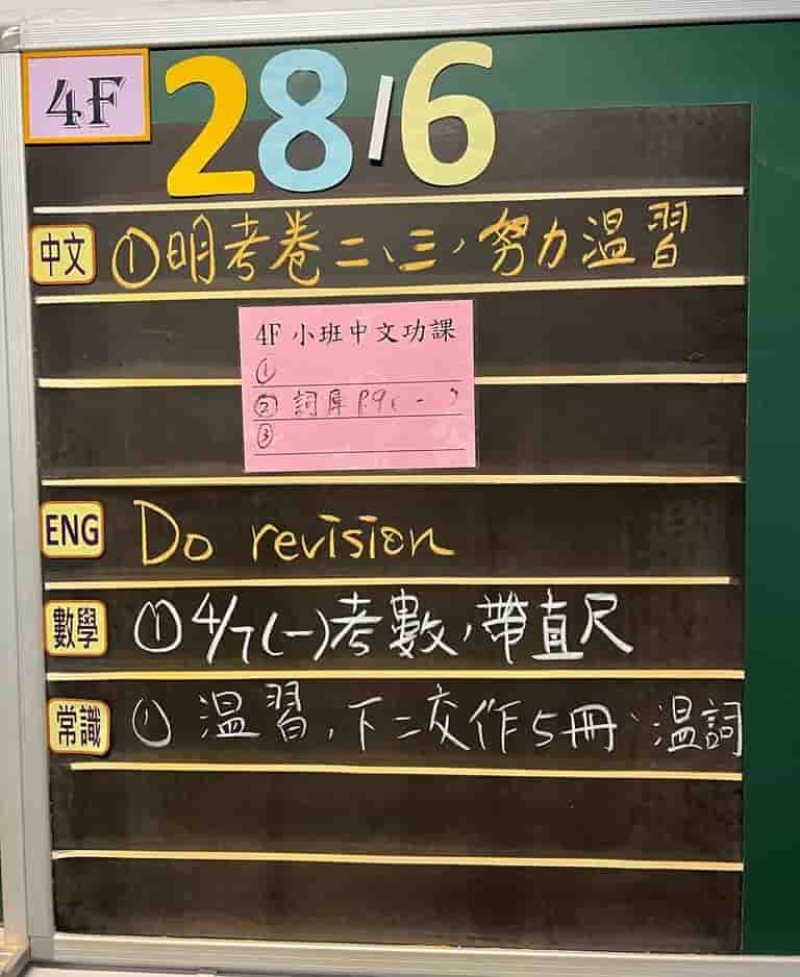 4F 28/6
中文 ①明考卷二、三，努力温習
4F 小班中文功課
①
② 詞庫 P.9
③
ENG Do revision
數學 ①4/7(一)考數，帶直尺
常識 ① 温習，下二交作5冊、温詞